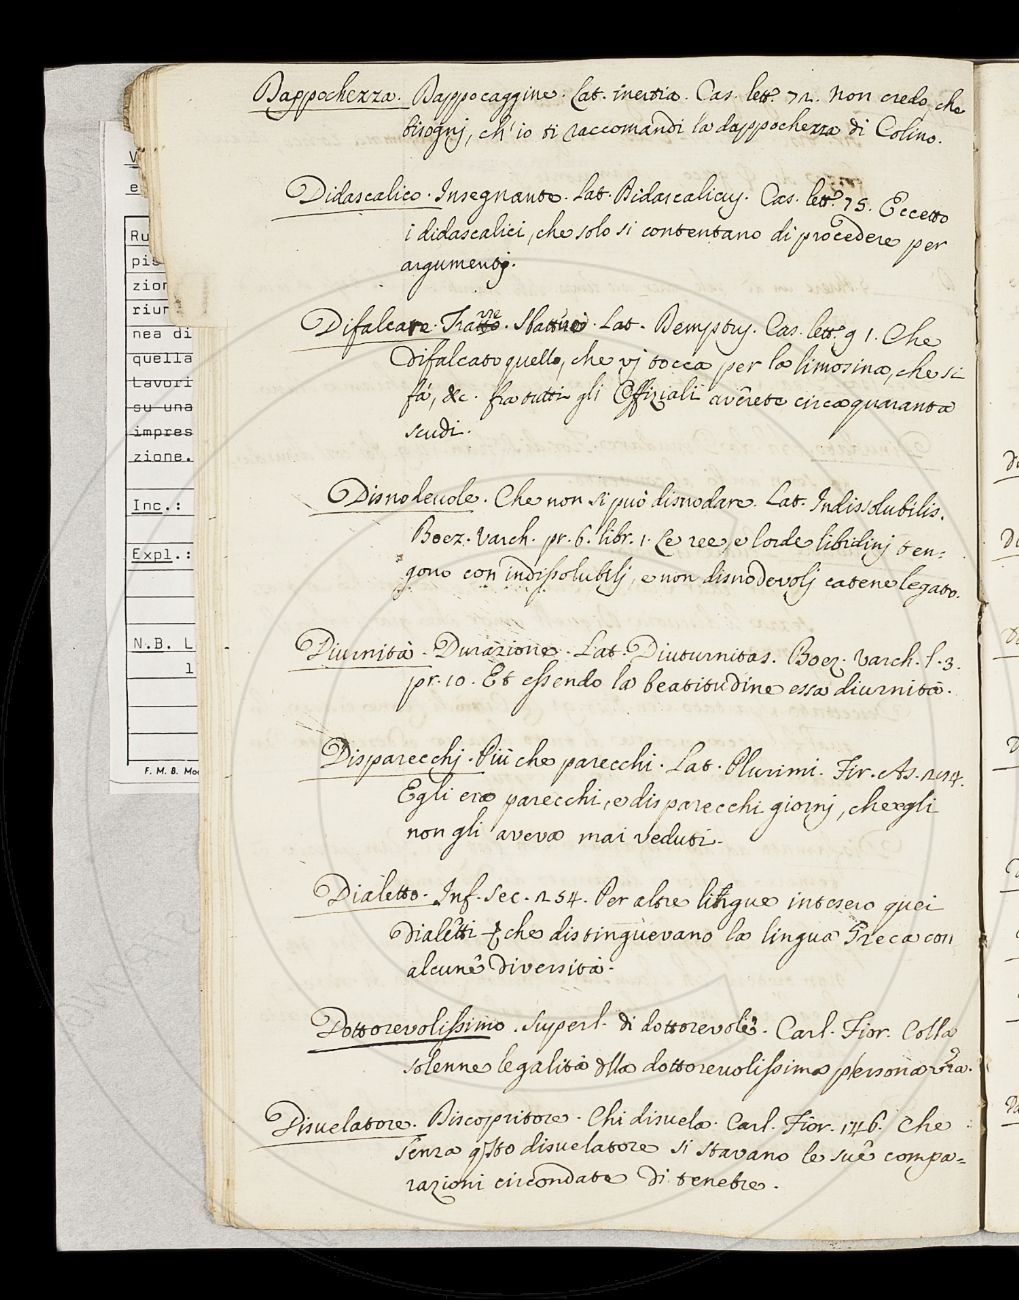 Dappochezza. Dappocaggine. Lat. inertia. Cas. lett. 72. Non credo, che
bisognj, ch'io ti raccomandi la dappochezza di Colino.
Didascalico. Insegnante. Lat. Didascalicus. Cas. lett. 75. Eccetto
i didascalici, che solo si contentano di procedere per
argumentj.
Difalcare. Trarre. Lat. Cas. lett. 91. Che
difalcato quello, che vj tocca per la limosina, che si
fà, &c. fra tutti gli Offiziali averete circa quaranta
scudi.
Disnodevole. Che non si può disnodare. Lat. Indissolubilis.
Boez. Varch. pr. 6. libr. 1. Le ree, e lorde libidinj ten=
gono con indissolubilj, e non disnodevolj catene legato.
Diurnità. Durazione. Lat. Diuturnitas. Boez. Varch. l. 3.
pr. 10. Et essendo la beatitudine essa diurnità.
Disparecchj. Più che parecchi. Lat. Plurimi. Fir. As. 214.
Egli era parecchi, e disparecchi giornj, ch'egli
non gli aveva mai veduti.
Dialetto. Inf. Sec. 254. Per altre lingue intesero quei
dialetti che distinguevano la lingua Greca con
alcune diversità.
Dottorevolissimo. Superl. di dottorevole. Carl. Fior. Colla
solenne legalità della dottorevolissima persona vra.
Disvelatore. Discopritore. Chi disvela. Carl. Fior. 146. Che
senza qsto disvelatore si stavano le sue compa=
razioni circondate di tenebre.
V
e
Ru
pis
zion
riun
nea di
quella
Lavori
su una
impres
zione.
Inc.:
Expl.:
N.B. L
l
F. M. B. Mo